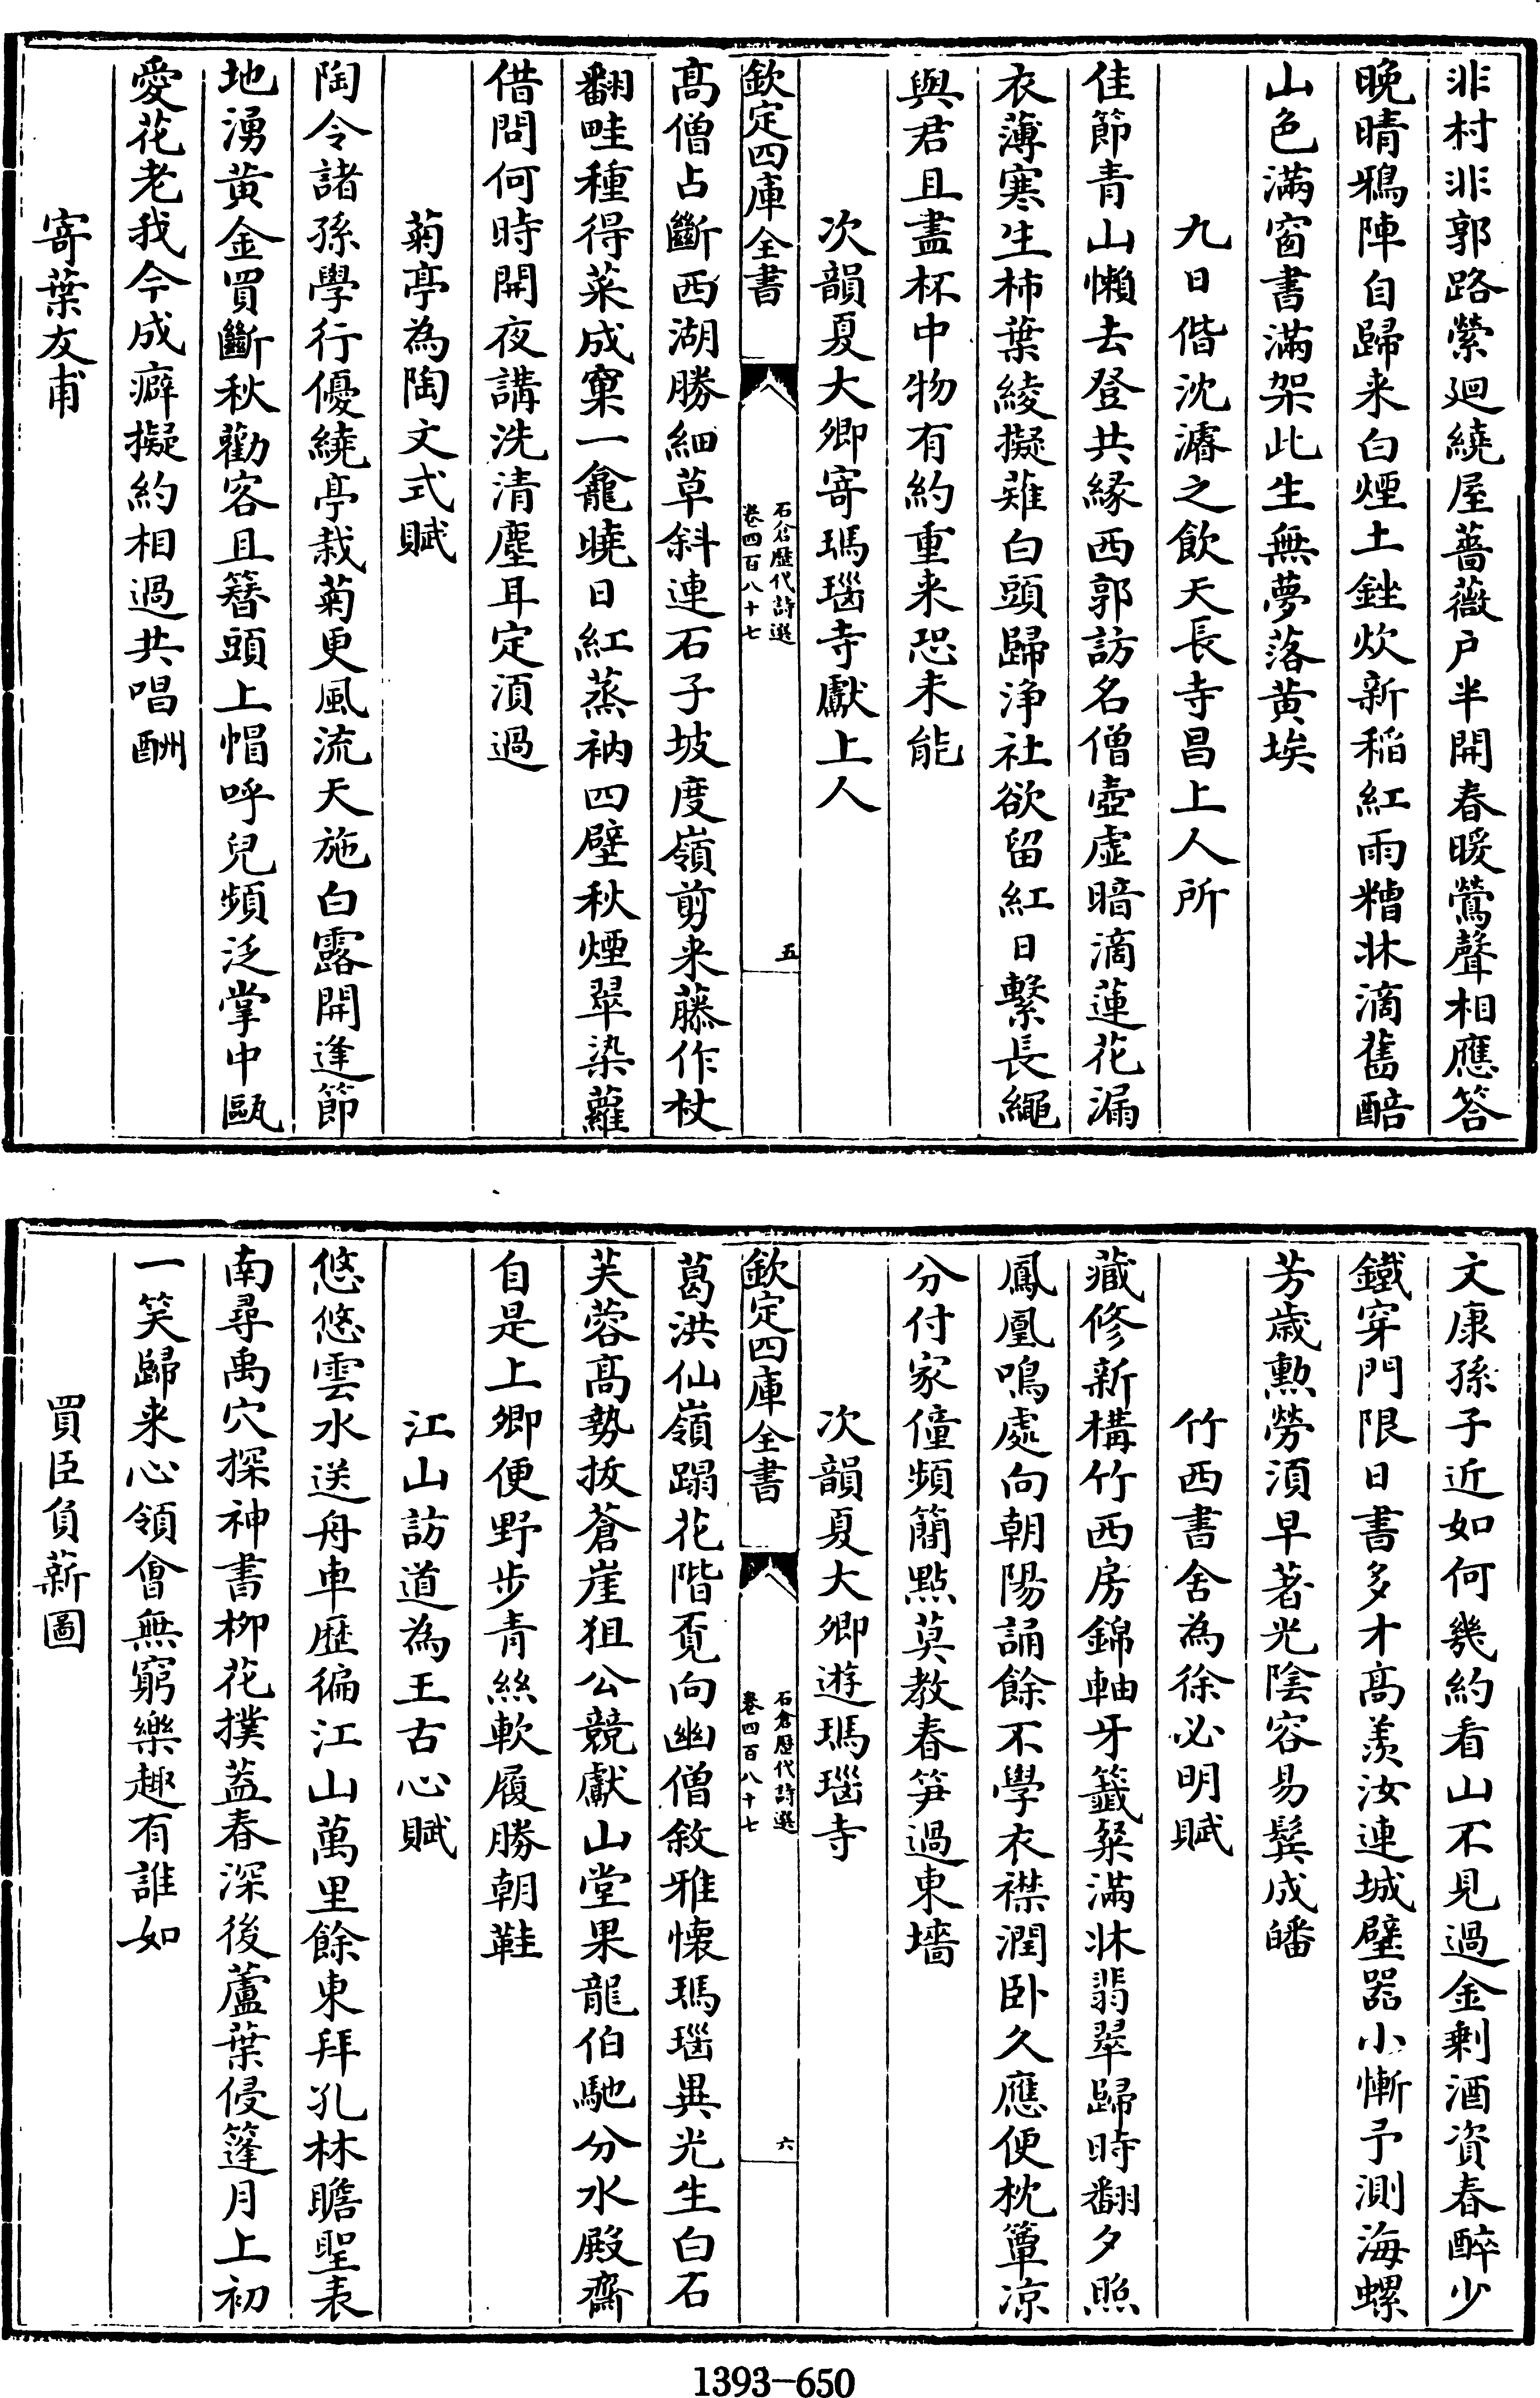 非村非郭路縈廻繞屋薔薇户半開春暖鶯聲相應答
晚晴鴉陣自歸来白煙土銼炊新稲紅雨糟牀滴舊醅
山色滿窗書滿架此生無夢落黄埃
九日偕沈濬之飲天長寺昌上人所
佳節青山懶去登共縁西郭訪名僧壺虚暗滴蓮花漏
衣薄寒生柿葉綾擬薙白頭歸浄社欲留紅日繫長繩
與君且盡杯中物有約重来恐未能
次韻夏大卿寄瑪瑙寺獻上人
欽定四庫全書
石倉歴代詩選
卷四百八十七
五
髙僧占斷西湖勝細草斜連石子坡度嶺剪来藤作杖
翻畦種得菜成窠一龕曉日紅蒸衲四壁秋煙翠染蘿
借問何時開夜講洗清塵耳定湏過
菊亭為陶文式賦
陶令諸孫學行優繞亭栽菊更風流天施白露開逢節
地湧黄金買斷秋勸客且簪頭上帽呼兒頻泛掌中甌
愛花老我今成癖擬約相過共唱酬
寄葉友甫
文康孫子近如何幾約看山不見過金剩酒資春醉少
鐵穿門限日書多才髙羨汝連城璧器小慚予測海螺
芳歳勲勞湏早著光陰容易鬂成皤
竹西書舍為徐必明賦
藏修新構竹西房錦軸牙籖粲滿牀翡翠歸時翻夕照
鳳凰鳴處向朝陽誦餘不學衣襟潤卧久應便枕簟凉
分付家僮頻簡點莫教春笋過東墻
次韻夏大卿遊瑪瑙寺
欽定四庫全書
石倉歴代詩選
卷四百八十七
六
葛洪仙嶺蹋花階覔向幽僧敘雅懐瑪瑙異光生白石
芙蓉髙勢拔蒼崖狙公競獻山堂果龍伯馳分水殿齋
自是上卿便野步青絲軟履勝朝鞋
江山訪道為王古心賦
悠悠雲水送舟車歴徧江山萬里餘東拜孔林瞻聖表
南尋禹穴探神書柳花撲葢春深後蘆葉侵篷月上初
一笑歸来心領㑹無窮樂趣有誰如
買臣負薪圖
1393-650